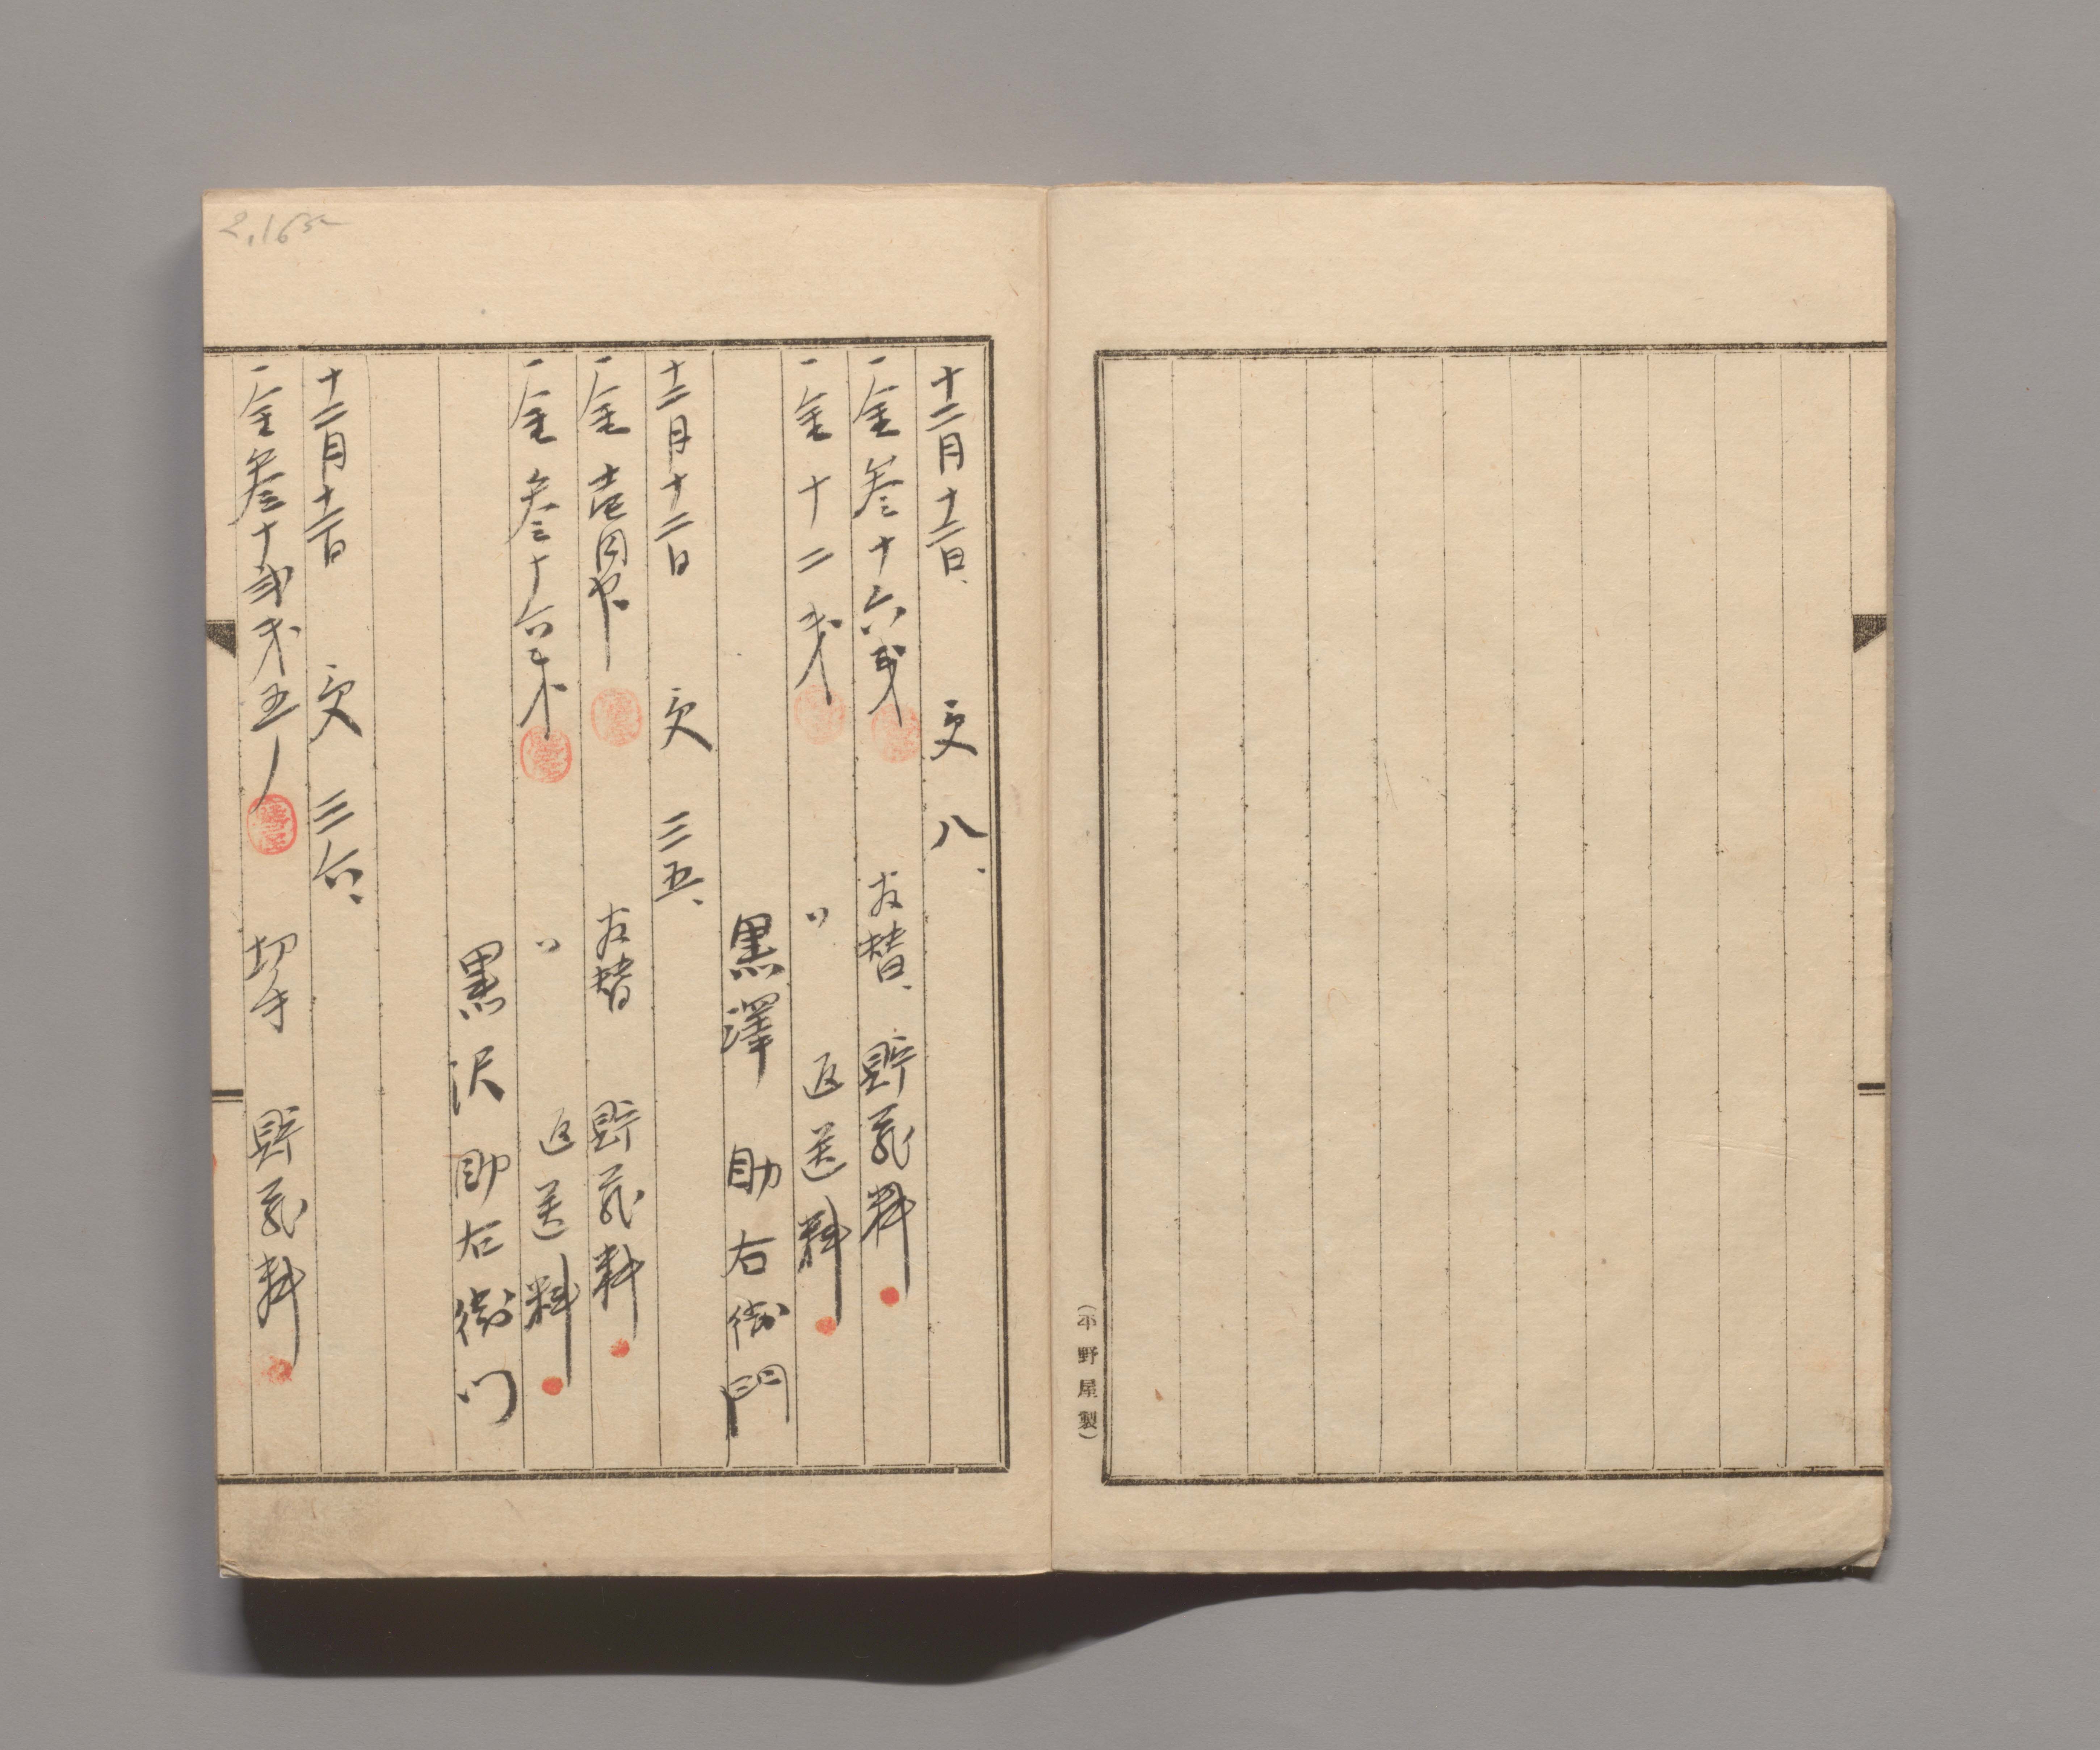 (平野屋製)
十二月十二日、 交 八、
一金叁十六戋 友替、 貯藏料
一金十二戋 〃 返送料
黒澤助右衛門
十二月十二日 交 三五、
一金壱円也 友替 貯藏料
一金叁十六戋 〃 返送料
黒沢助右衛門
十二月十二日 交 三六、
一金叁十弐戋五 切手 貯藏料